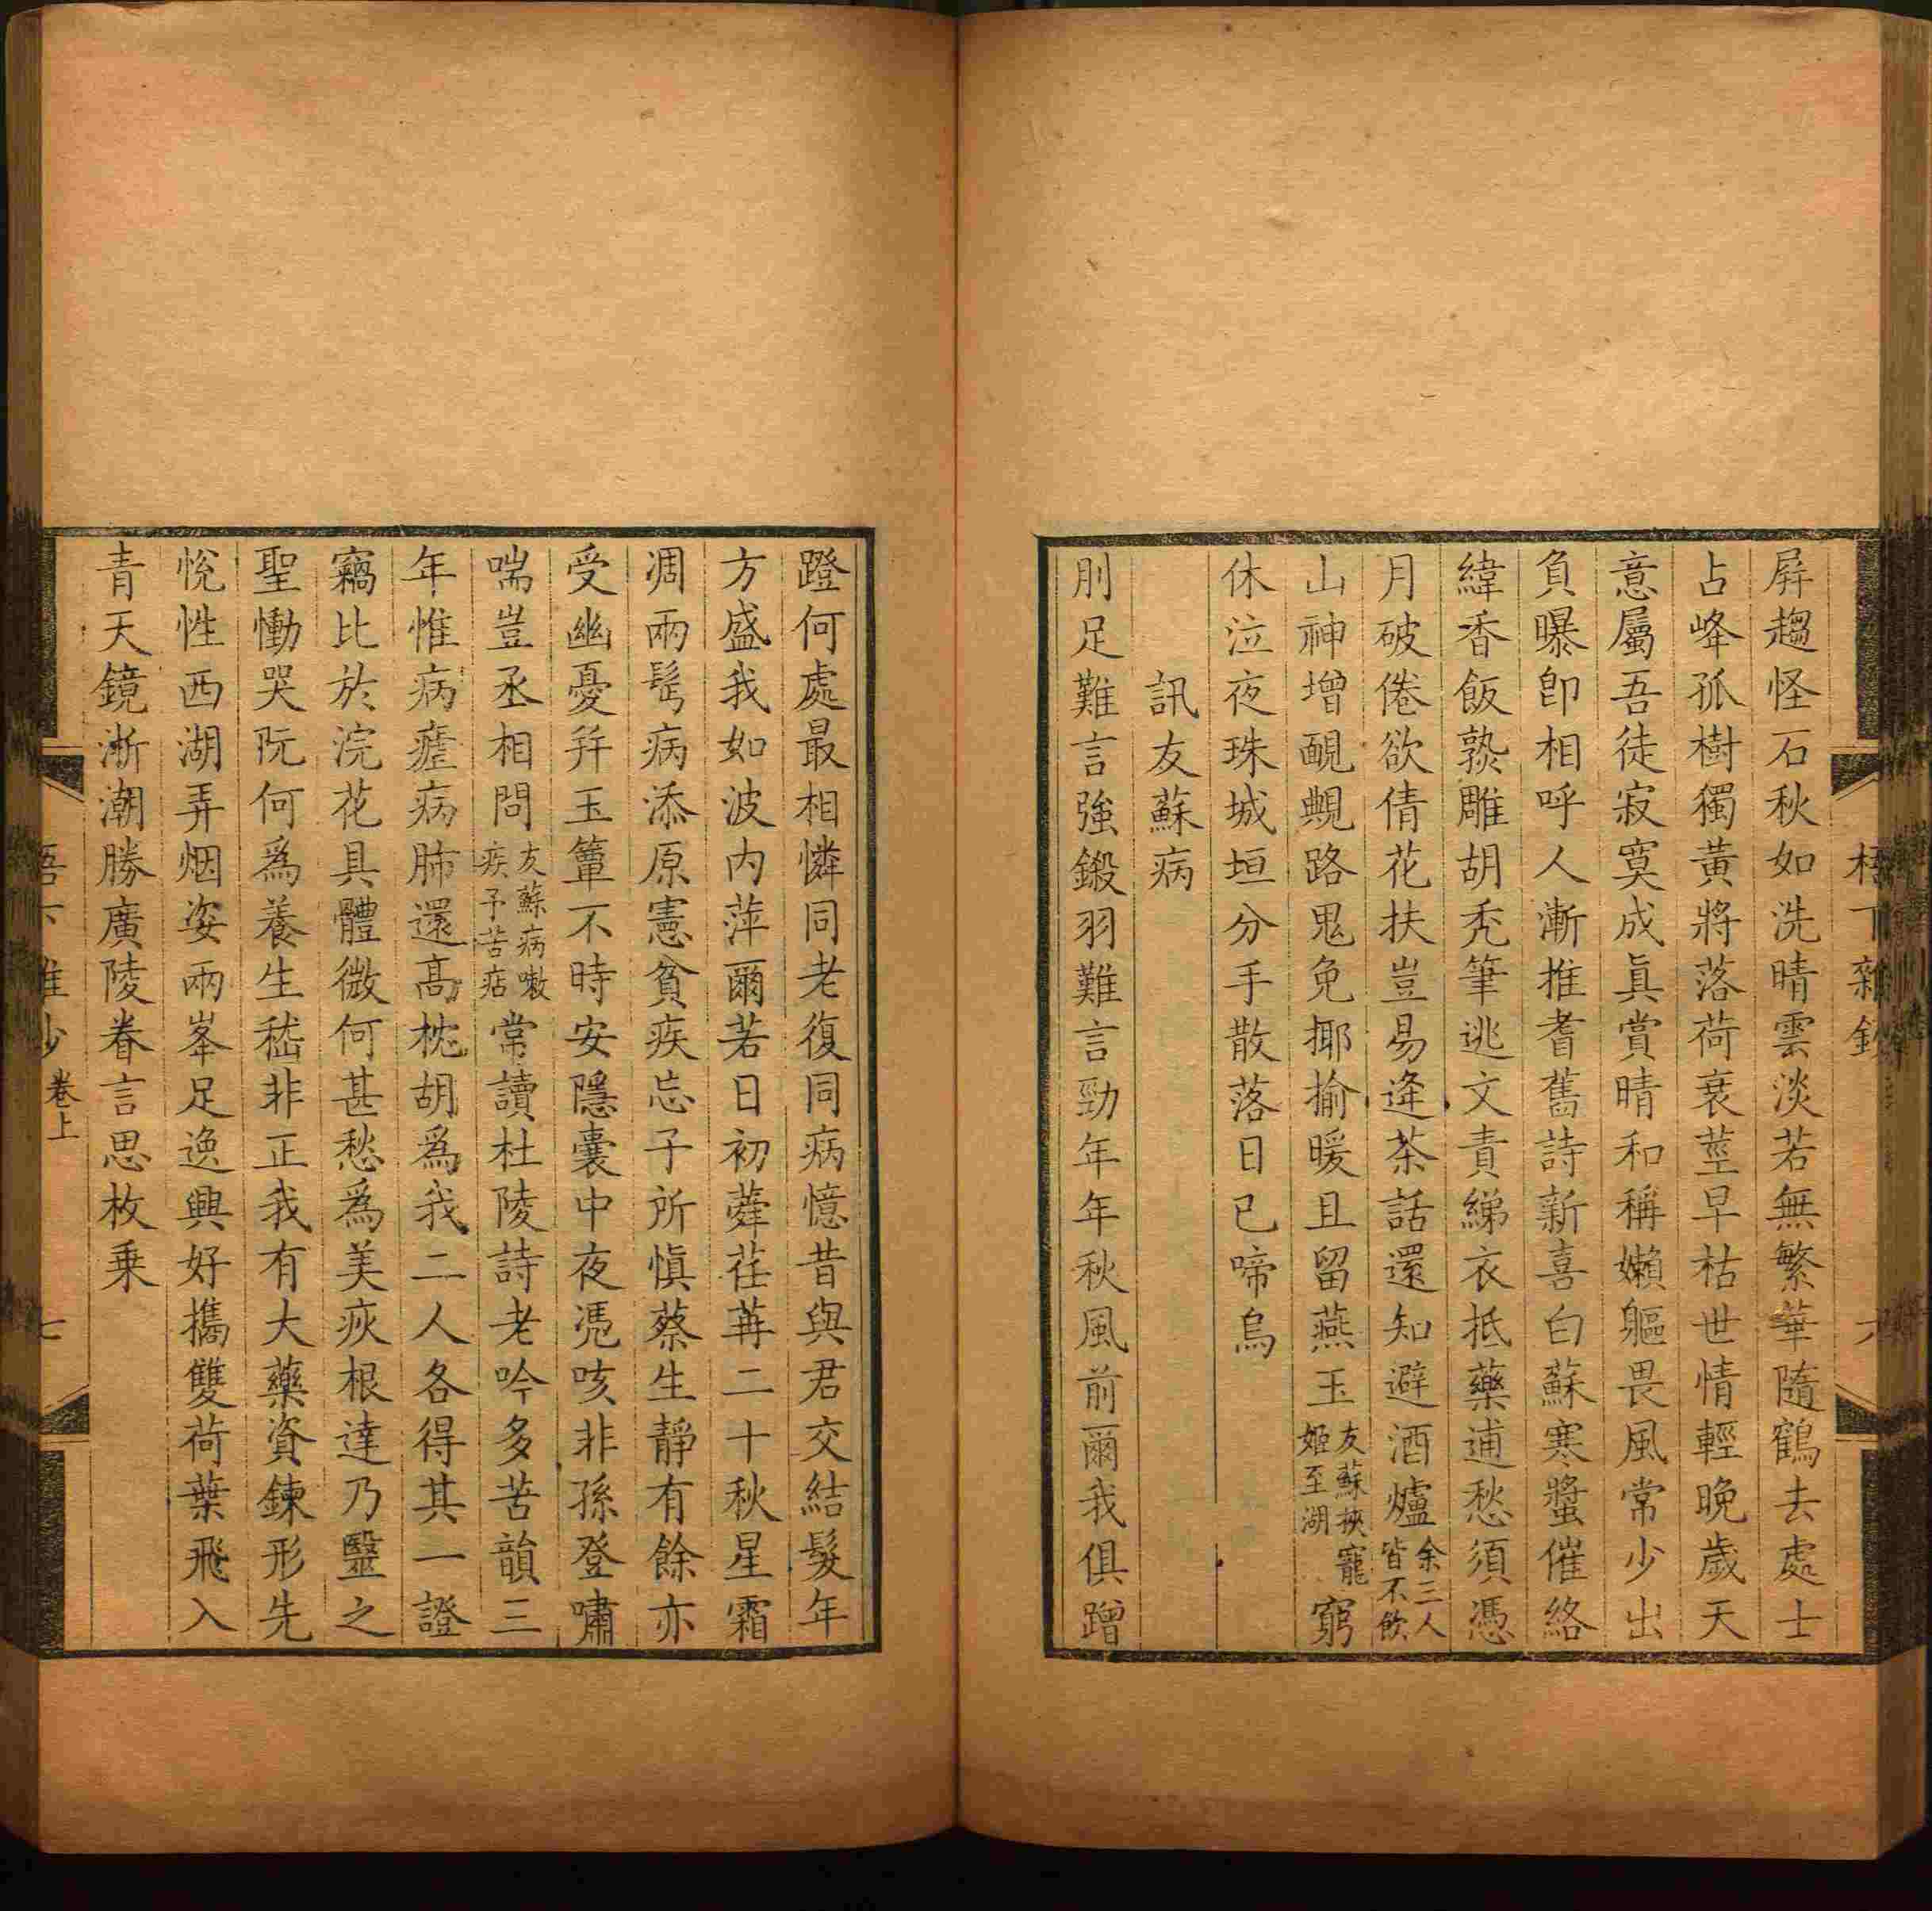 梧下雜鈔
屏趨怪石秋如洗晴雲淡若無繁華隨鶴去處士
占峰孤樹獨黃將落荷衰莖早枯世情輕晚歲天
意屬吾徒寂寞成眞賞晴和稱嬾軀畏風常少出
負曝卽相呼人漸推耆舊詩新喜白蘇寒螿催絡
緯香飯孰雕胡秃筆逃文責綈衣抵藥逋愁須憑
月破倦欲倩花扶豈易逄茶話還知避酒爐余三人皆不飲
山神增靦覥路鬼免揶揄暖且留燕玉友蘇挾寵姬至湖窮
休泣夜珠城垣分手散落日已啼烏
訊友蘇病
刖足難言強鍛羽難言勁年年秋風前爾我俱蹭
蹬何處最相憐同老復同病憶昔與君交結髮年
方盛我如波內萍爾若日初蕣荏苒二十秋星霜
凋兩髩病添原憲貧疾忘子所愼蔡生靜有餘亦
受幽憂幷玉簟不時安隱囊中夜凭咳非孫登嘯
喘豈丞相問友蘇病嗽疾予苦痁常讀杜陵詩老吟多苦韻三
年惟病瘧病肺還高枕胡爲我二人各得其一證
竊比於浣花具體微何甚愁爲美疢根達乃毉之
聖慟哭阮何爲養生嵇非正我有大藥資鍊形先
悅性西湖弄烟姿兩峯足逸興好攜雙荷葉飛入
青天鏡淅潮勝廣陵眷言思枚乗
卷上
七